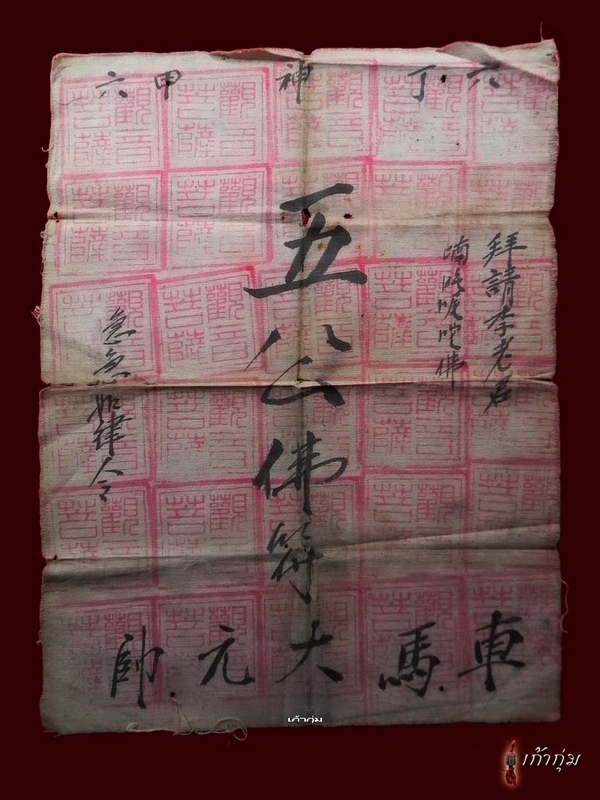 六丁神甲六
拜請李老君
五公佛符
急急如律令
車馬大元帥
觀音菩薩
เก้ากุ่ม
เก้ากุ่ม